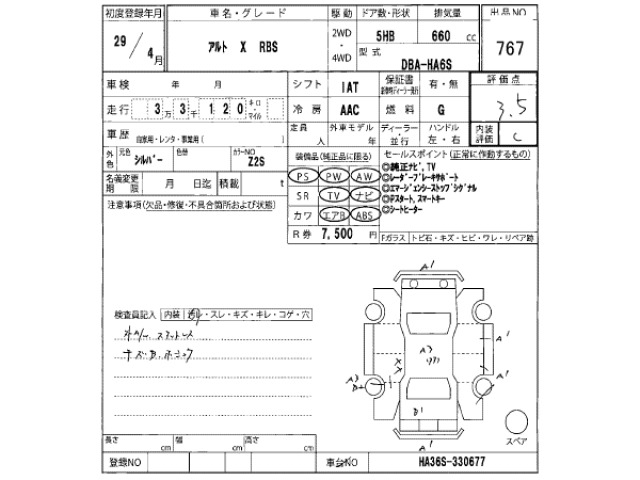 初度登録年月 車名・グレード 駆動 ドア数・形状 排気量 出品NO
29 / 4月 アルト X RBS 2WD ・ 4WD 5HB 660 cc 767
型式 DBA-HA6S
車検 年 月 シフト IAT 保証書 有・無 評価点
走行 3万3千120 キロ・マイル 冷房 AAC 燃料 G 3.5
車歴 自家用・レンタ・事業用( ) 定員 人 外車モデル 年 ディーラー・並行 ハンドル 左・右 内装評価 C
外色 元色 シルバー 色替 カラーNO Z2S
装備品(純正品に限る) セールスポイント(正常に作動するもの)
名義変更期限 月 日迄 積載 t
PS PW AW
SR TV ナビ
カワ エアB ABS
R券 7,500 円
◎純正ナビ,TV
◎レーダーブレーキサポート
◎エマージェンシーストップシグナル
◎Pスタート,スマートキー
◎シートヒーター
Fガラス トビ石・キズ・ヒビ・ワレ・リペア跡
注意事項(欠品・修復・不具合箇所および状態)
検査員記入 内装 汚レ・スレ・キズ・キレ・コゲ・穴
A1
A1
A3
A3
A1
B1
A1
スペア
長さ cm 幅 cm 高さ cm
登録NO 車台NO HA36S-330677